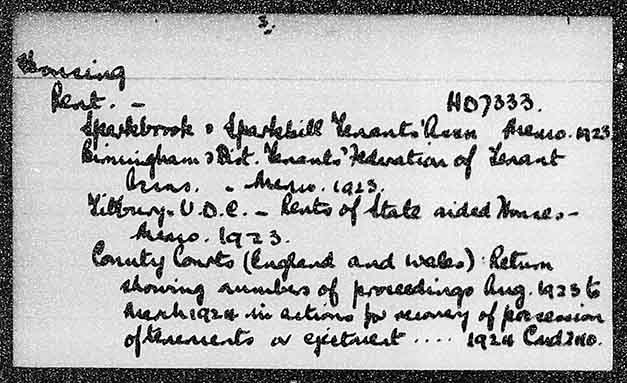 3.
Housing
Rent. - HD7333.
Sparkbrook & Sparkhill Tenants' Assn Memo. 1923
Birmingham & Dist. Tenants' Federation of Tenant
Assns. - Memo. 1923.
Tilbury. U.D.C. - Rents of State aided Houses -
Memo. 1923.
County Courts (England and Wales) Return
showing numbers of proceedings Aug. 1923 to
March 1924 in actions for recovery of possession
of tenements or ejectment .... 1924 Cmd 2110.